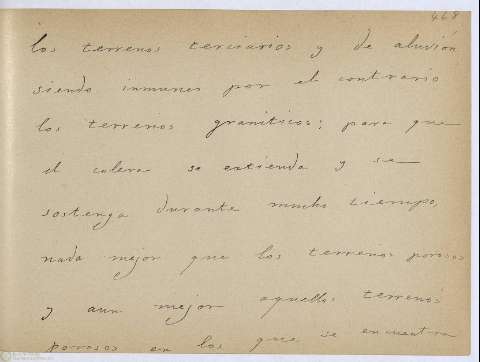 468
los terrenos terciarios y de aluvión
siendo inmunes por el contrario
los terrenos graniticos; para que
el colera se extienda y se
sostenga durante mucho tiempo,
nada mejor que los terrenos porosos
y aun mejor aquellos terrenos
porosos en los que se encuentra